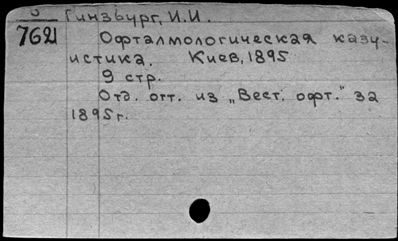 Гинзбург, И.И.
7621
Офталмологическая казу-
истика. Киев, 1895
9 стр.
Отд. отт. из „Вест. офт." за
1895 г.